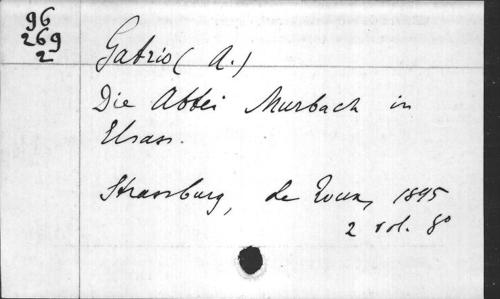 96
269
2
Gatrio (A.)
Die Abtei Murbach in
Elsass.
Strassburg, Le Roux, 1895
2 vol. 8°